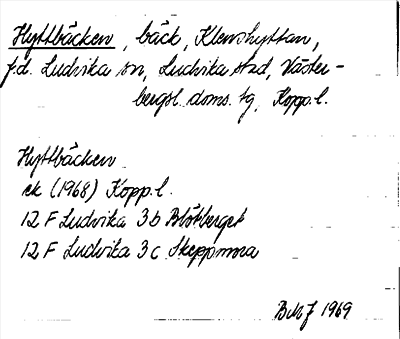 Hyttbäcken, bäck, Klenshyttan,
f.d. Ludvika sn, Ludvika stad, Väster-
bergsl. doms. tg, Kopp. l.
Hyttbäcken
ek (1968) Kopp. l.
12 F Ludvika 3 b Blötberget
12 F Ludvika 3 c Skeppmora
1969